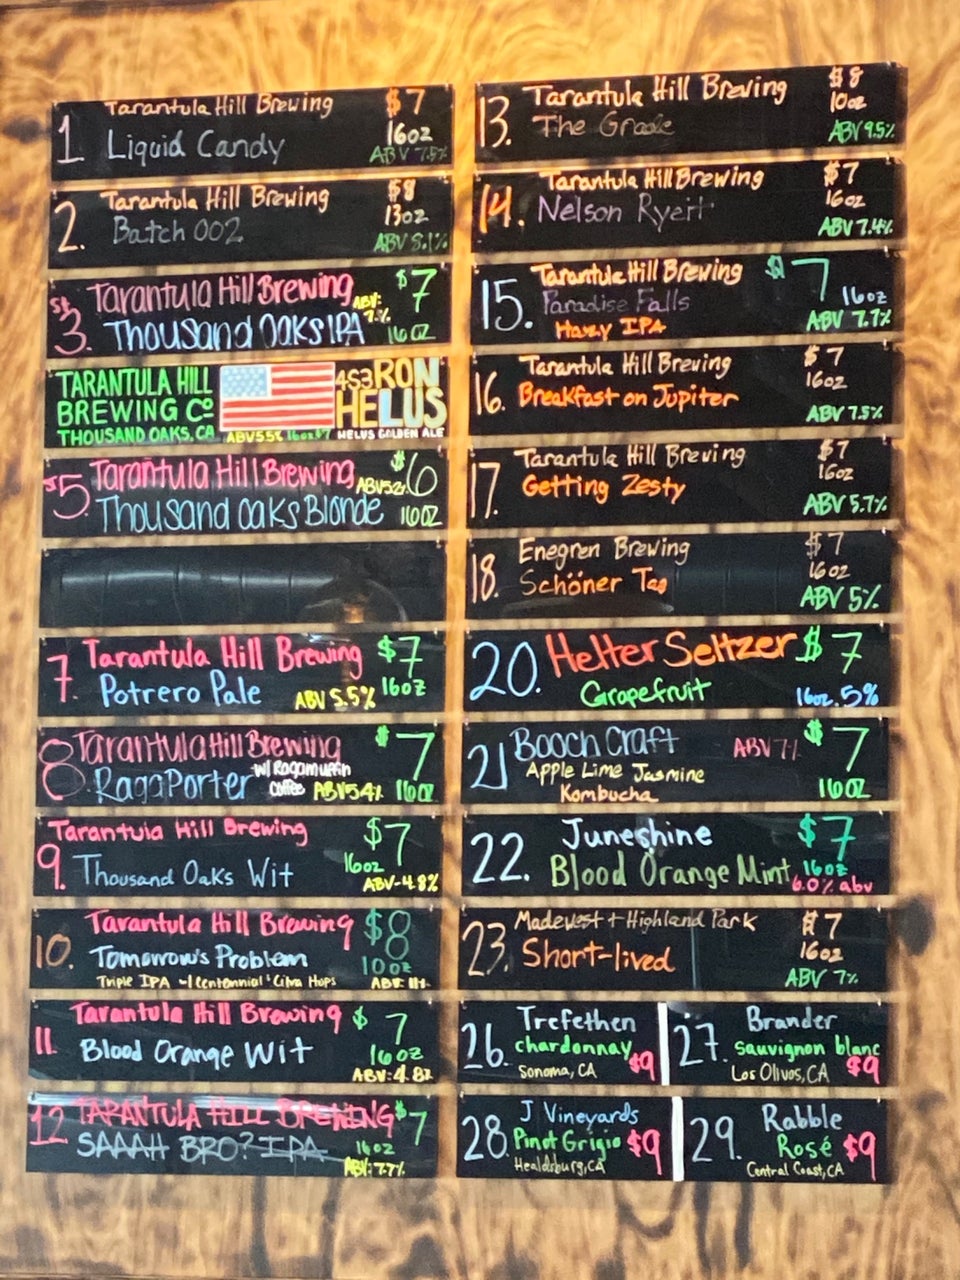 1
Tarantula Hill Brewing $7
Liquid Candy 16oz
ABV 7.5%
2.
Tarantula Hill Brewing $8
Batch 002 13oz
ABV 8.1%
3.
Tarantula Hill Brewing $7
ABV:
Thousand Oaks IPA 16oz
TARANTULA HILL
BREWING Co
THOUSAND OAKS, CA
4 RON
HELUS
HELUS GOLDEN ALE
5
Tarantula Hill Brewing $6
Thousand Oaks Blonde 16oz
7.
Tarantula Hill Brewing $7
Potrero Pale ABV 5.5% 16oz
8
Tarantula Hill Brewing $7
RagaPorter w/ Ragamuffin
Coffee ABV 5.4% 16oz
9.
Tarantula Hill Brewing $7
16oz
Thousand Oaks Wit ABV-4.8%
10.
Tarantula Hill Brewing $8
Tomorrow's Problem 10oz
Triple IPA w/ Centennial & Citra Hops
11.
Tarantula Hill Brewing $7
Blood Orange Wit 16oz
ABV: 4.8%
12
TARANTULA HILL BREWING $7
SAAAH BRO? IPA 16oz
ABV: 7.7%
13.
Tarantula Hill Brewing $8
The Grade 10oz
ABV 9.5%
14.
Tarantula Hill Brewing $7
Nelson Ryeit 16oz
ABV 7.4%
15.
Tarantula Hill Brewing $7
Paradise Falls 16oz
Hazy IPA ABV 7.7%
16.
Tarantula Hill Brewing $7
Breakfast on Jupiter 16oz
ABV 7.5%
17.
Tarantula Hill Brewing $7
Getting Zesty 16oz
ABV 5.7%
18.
Enegren Brewing $7
Schöner Tag 16oz
ABV 5%
20.
Helter Seltzer $7
Grapefruit 16oz. 5%
21
Booch Craft ABV 7% $7
Apple Lime Jasmine
Kombucha 16oz
22.
Juneshine $7
Blood Orange Mint 16oz
6.0% abv
23.
Madewest + Highland Park $7
Short-lived 16oz
ABV 7%
26.
Trefethen
chardonnay $9
Sonoma, CA
27.
Brander
sauvignon blanc
Los Olivos, CA $9
28.
J Vineyards
Pinot Grigio $9
Healdsburg, CA
29.
Rabble
Rosé $9
Central Coast, CA